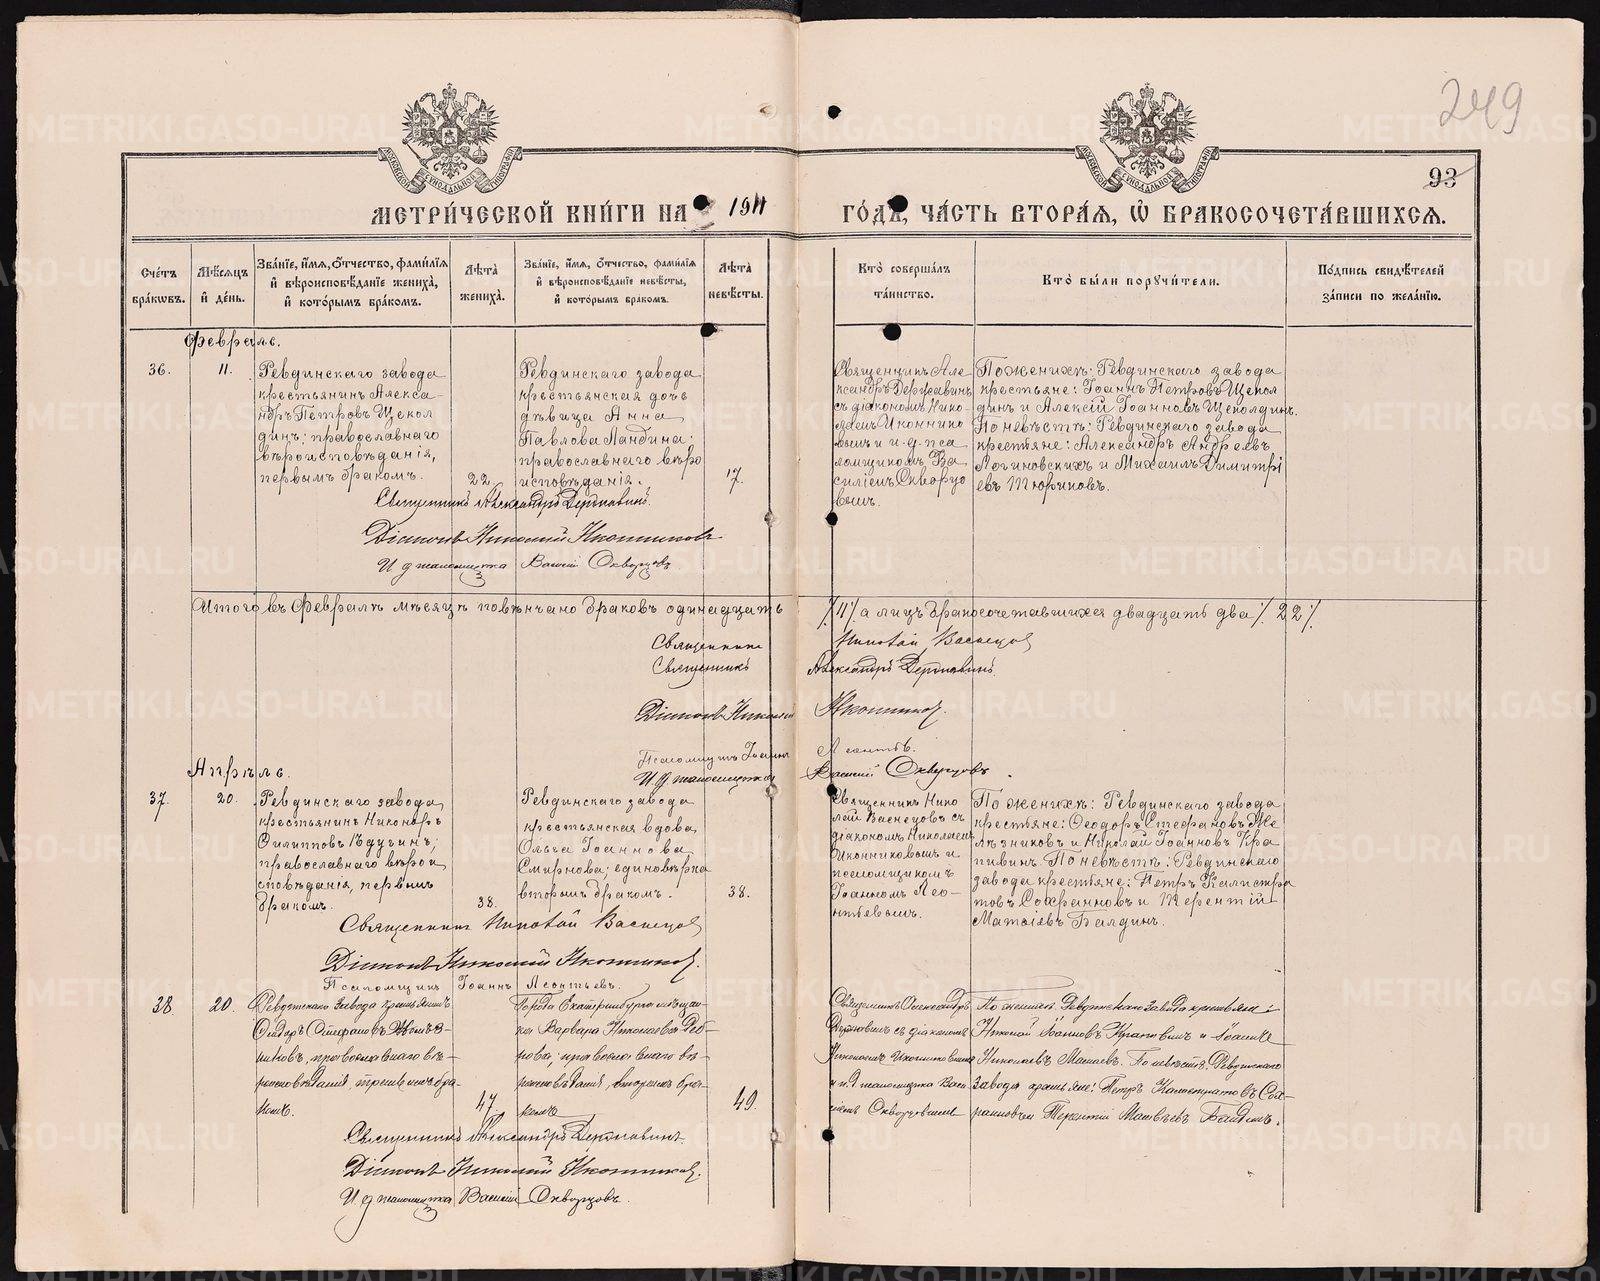 249
93
МОСКОВСКОЙ СѴНОДАЛЬНОЙ ТИПОГРАФІИ
МОСКОВСКОЙ СѴНОДАЛЬНОЙ ТИПОГРАФІИ
МЕТРИ́ЧЕСКОЙ КНИ́ГИ НА 1911
ГО́ДЪ, ЧА́СТЬ ВТОРА́Я, Ѡ҆ БРАКОСОЧЕТА́ВШИХСЯ.
Сче́тъ бра́кѡвъ.
Мѣ́сяцъ и҆ де́нь.
Зва́нїе, и҆́мя, ѻ҆́тчество, фами́лїя и҆ вѣроисповѣ́данїе жениха̀, и҆ кото́рымъ бра́комъ.
Лѣ́та жениха̀.
Зва́нїе, и҆́мя, ѻ҆́тчество, фами́лїя и҆ вѣроисповѣ́данїе невѣ́сты, и҆ кото́рымъ бра́комъ.
Лѣ́та невѣ́сты.
Кто̀ соверша́лъ та́инство.
Кто̀ бы́ли порꙋчи́тели.
По́дпись свидѣ́телей за́писи по жела́нїю.
Февраль.
36.
11.
Ревдинскаго завода
крестьянинъ Алекса-
ндръ Петровъ Щекол
динъ; православнаго
вѣроисповѣданія,
первымъ бракомъ.
22.
Ревдинскаго завода
крестьянская дочь
дѣвица Анна
Павлова Ландина;
православнаго вѣро
исповѣданія.
17.
Священникъ Але
ксандръ Державинъ
съ діакономъ Нико-
лаемъ Иконнико
вымъ и и.д. пса
ломщикомъ Ва
силіемъ Скворцо
вымъ.
По женихѣ: Ревдинскаго завода
крестьяне: Іоаннъ Петровъ Щекол
динъ и Алексій Іоанновъ Щеколдинъ.
По невѣстѣ: Ревдинскаго завода
крестьяне: Александръ Андреевъ
Логиновскихъ и Михаилъ Димитрі
евъ Тюриковъ.
Священникъ Александръ Державинъ.
Діаконъ Николай Иконниковъ
И д псаломщика Василій Скворцовъ
Итого въ Февралѣ мѣсяцѣ повѣнчано браковъ одинадцать
/.11/. а лицъ бракосочетавшихся двадцать два /. 22 /.
Священникъ Николай Васнецовъ
Священникъ Александръ Державинъ.
Діаконъ Николай Иконниковъ.
Псаломщикъ Іоаннъ Леонтьевъ.
И д псаломщика Василій Скворцовъ.
Апрѣль.
37.
20.
Ревдинскаго завода,
крестьянинъ Никоноръ
Филипповъ Кдугинъ;
православнаго вѣрои
сповѣданія, первымъ
бракомъ.
38.
Ревдинскаго завода
крестьянская вдова,
Ольга Іоаннова
Смирнова; единовѣрка
вторымъ бракомъ.
38.
Священникъ Нико
лай Васнецовъ съ
діакономъ Николаемъ
Иконниковымъ и
псаломщикомъ
Іоанномъ Лео-
нтьевымъ.
По женихѣ: Ревдинскаго завода
крестьяне: Ѳеодоръ Стефановъ Же
лѣзниковъ и Николай Іоанновъ Кра
пивинъ. По невѣстѣ: Ревдинскаго
завода крестьяне: Петръ Калистра
товъ Сафанновъ и Терентій
Матвіевъ Балдинъ.
Священникъ Николай Васнецовъ
Діаконъ Николай Иконниковъ.
Псаломщикъ Іоаннъ Леонтьевъ.
38
20.
Ревдинскаго завода крестьянинъ
Ѳедоръ Стефановъ Желѣз-
никовъ, православнаго вѣ-
роисповѣданія, третьимъ бра
комъ.
47.
Города Екатеринбурга мѣщан-
ка Варвара Николаева
православнаго вѣ-
роисповѣданія, вторымъ бра-
комъ
49.
Священникъ Александръ
Державинъ съ діакономъ
Николаемъ Иконниковымъ
и и.д псаломщика Васи-
ліемъ Скворцовымъ
По женихѣ: Ревдинскаго завода крестьяне:
Николай Іоанновъ Крапивинъ и Іоаннъ
Николаевъ Мамаевъ. По невѣстѣ: Ревдинскаго
завода крестьяне: Петръ Калистратовъ Саф-
ранновъ и Терентій Матвѣевъ Балдинъ.
Священникъ Александръ Державинъ.
Діаконъ Николай Иконниковъ.
И д псаломщика Василій Скворцовъ.
METRIKI.GASO-URAL.RU